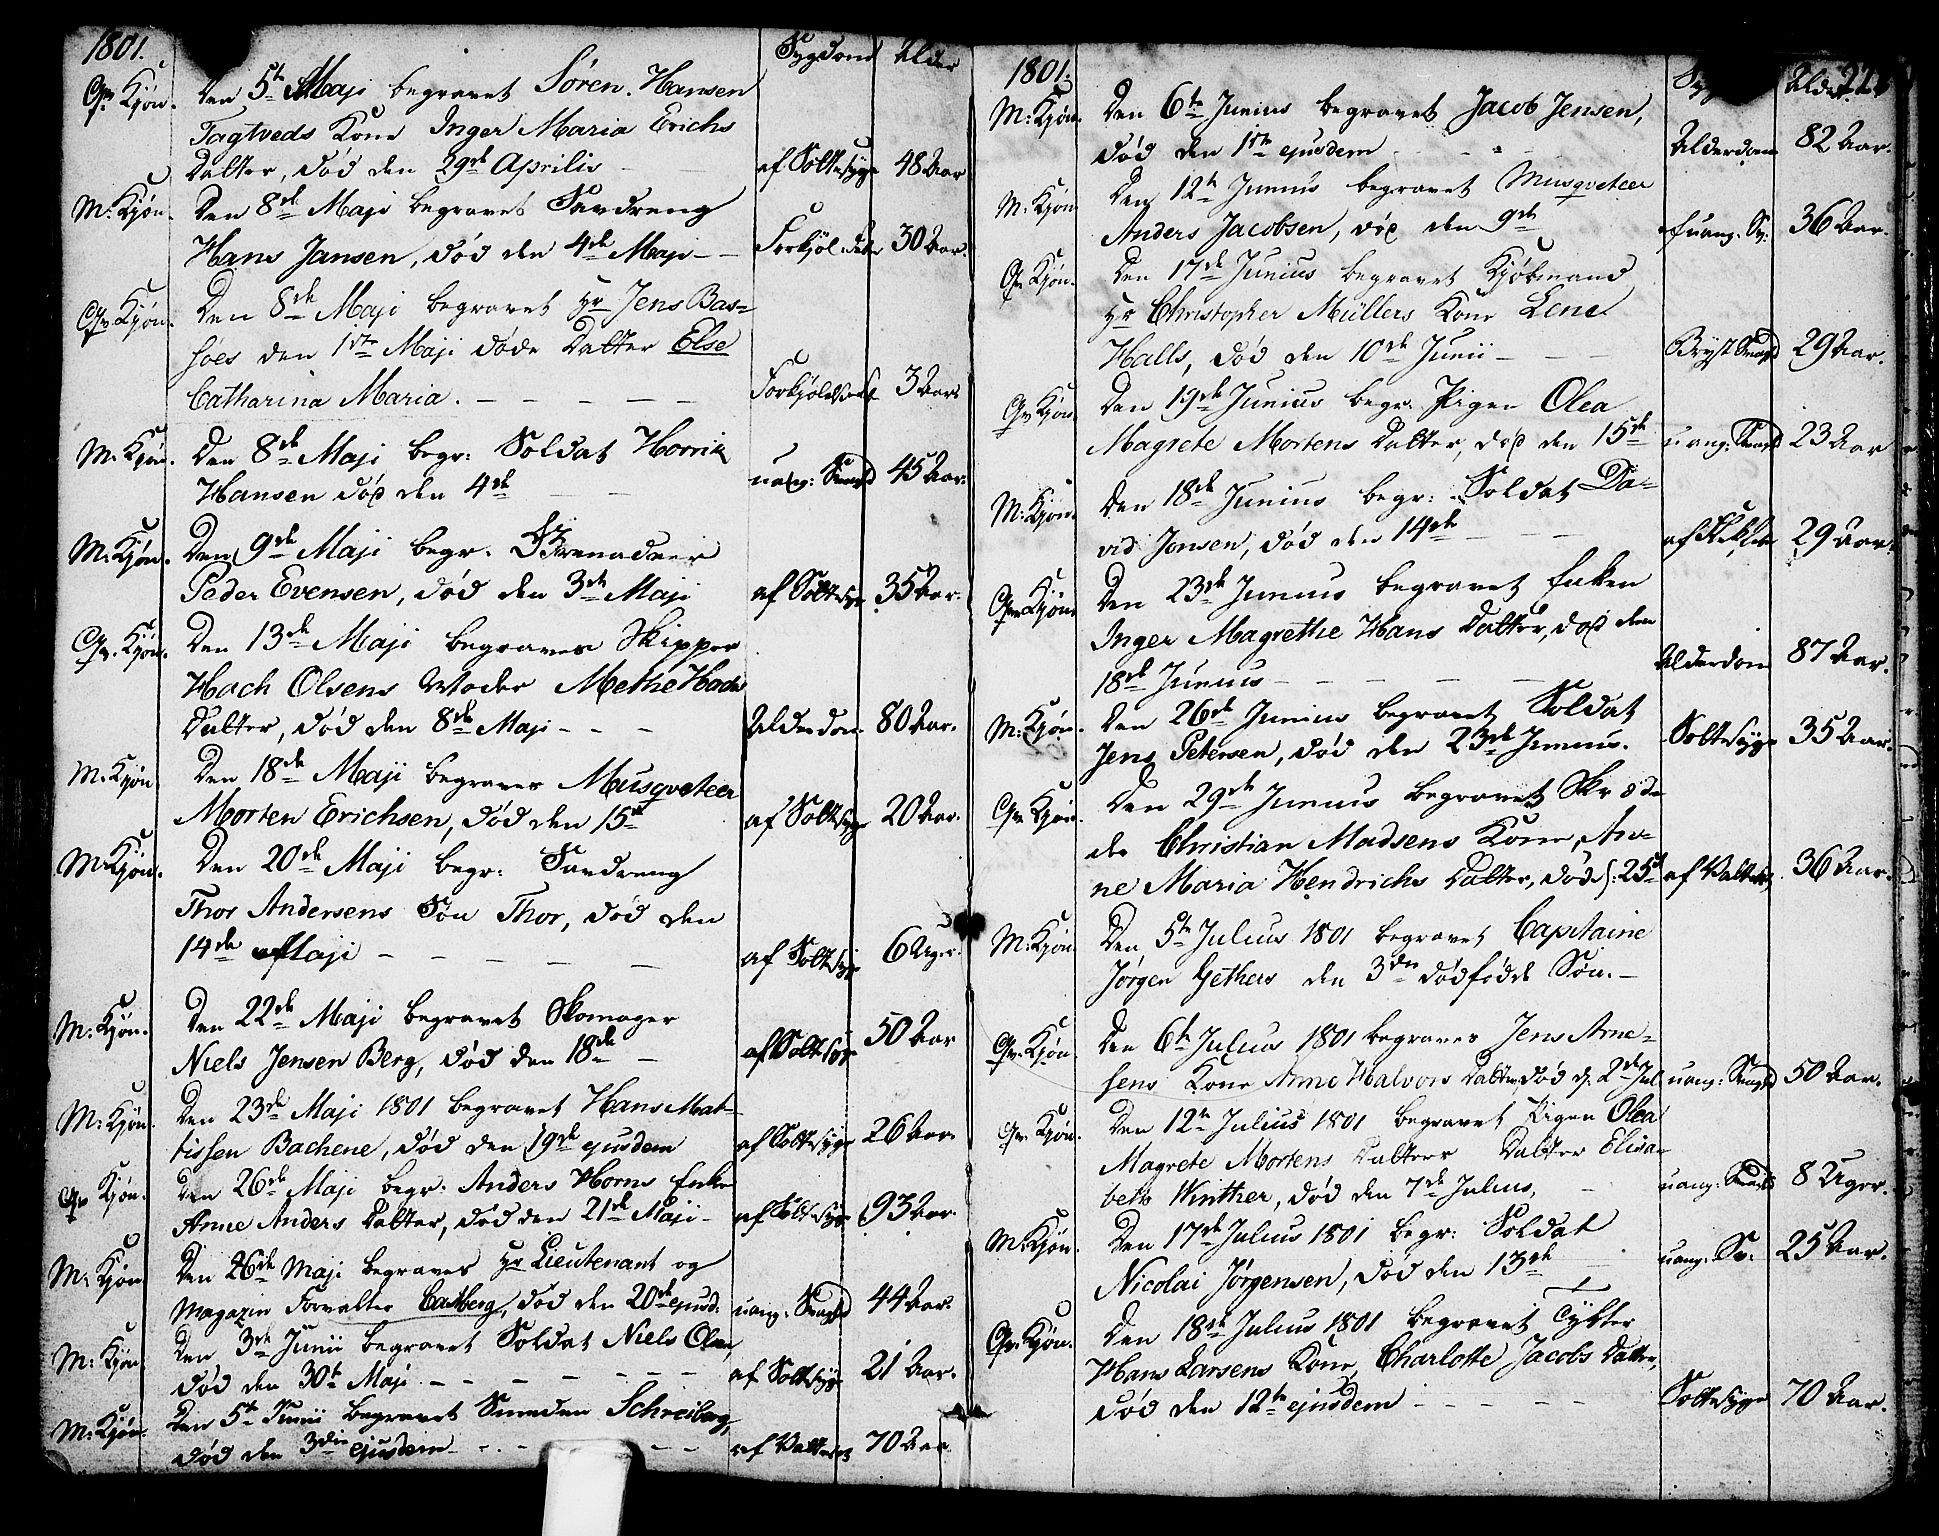 1801. Sygdom Alder
Qv. Kjøn. Den 5te Maji begravet Søren Hansen
Tagtveds Kone Inger Maria Erichs
Datter, død den 29de Aprilis af Sottesyge 48 Aar
M: Kjøn. Den 8de Maji begravet
Hans Jansen, død den 4de Maji - - 30 Aar.
Qv. Kjøn. Den 8de Maji begravet Hr Jens Bas-
hoes den 1ste Maji døde Datter Else
Catharina Maria. - - - - - 3 Aar
M: Kjøn. Den 8de Maji begr: Soldat
Hansen død den 4de - - 45 Aar.
M: Kjøn. Den 9de Maji begr.
Peder Evensen, død den 3de Maji af Sottesyge 35 Aar.
Qv. Kjøn. Den 13de Maji begraven Skipper
Hach Olsens Moder Methe Hachs
Datter, død den 8de Maji - - - Alderdom. 80 Aar.
M: Kjøn. Den 18de Maji begraven Musqveteer
Morten Erichsen, død den 15de af Sottesyge 20 Aar.
M: Kjøn. Den 20de Maji begr:
Thor Andersens Søn Thor, død den
14de Maji - - - - - af Sottesyge 6 Uger.
M: Kjøn. Den 22de Maji begravet Skomager
Niels Jensen Berg, død den 18de - af Sottesyge 50 Aar
M: Kjøn. Den 23de Maji 1801 begravet Hans Mat-
tissen Bachene, død den 19de ejusdem af Sottesyge 26 Aar.
Qv Kjøn. Den 26de Maji begr: Anders Horns Enke
Anne Anders Datter, død den 21de Maji - af Sottesyge 93 Aar.
M: Kjøn. Den 26de Maji begraven Hr Lieutenant og
Magazin Forvalter Castberg, død den 20de ejusd: 44 Aar.
M: Kjøn. Den 3de Junii begravet Soldat Niels Olsen,
død den 30te Maji - - - - - - af Sottesyge 21 Aar.
M: Kjøn. Den 5te Junii begravet Smeden Schreiberg,
død den 3die ejusdem - - - - af Vattersot 70 Aar.
1801. Alder.
M: Kjøn. Den 6te Junius begravet Jacob Jensen,
død den 1ste ejusdem - - - Alderdom 82 Aar.
M: Kjøn. Den 12te Junius begravet Musqveteer
Anders Jacobsen, død den 9de 36 Aar.
Qv Kjøn. Den 17de Junius begravet Kjøbmand
Hr Christopher Müllers Kone Lene
Halls, død den 10de Junii - - - Bryst Svaghd 29 Aar.
Qv Kjøn. Den 19de Junius begr. Pigen Olea
Magrete Mortens Datter, død den 15de uang: Svaghd 23 Aar
M: Kjøn. Den 18de Junius begr: Soldat Da-
vid Jonsen, død den 14de - - - 29 Aar.
Qv Kjøn. Den 23de Junius begravet Enken
Inger Magrethe Hans Datter, død den
18de Junius - - - - - Alderdom 87 Aar.
M: Kjøn. Den 26de Junius begravet Soldat
Jens Petersen, død den 23de Junius. Sottesyge 35 Aar.
Qv Kjøn. Den 29de Junius begravet Skræde-
der Christian Madsens Kone, An-
ne Maria Hendrichs Datter, død d: 25de af Vattersot 36 Aar.
M: Kjøn. Den 5te Julius 1801 begravet Capitaine
Jørgen Gethers den 3die dødfødde Søn. -
Qv. Kjøn. Den 6te Julius 1801 begraven Jens Arne-
sens Kone Anne Halvors Datter, død d: 2de Jul uang: Svaghd 50 Aar.
Qv Kjøn. Den 12te Julius 1801 begravet Pigen Olea
Magrete Mortens Datters Datter Elisa-
beth Winther, død den 7de Julius, - uang: Svaghd 8 Uger.
M: Kjøn. Den 17de Julius 1801 begr: Soldat
Nicolai Jørgensen, død den 13de uang: Sv: 25 Aar.
Qv. Kjøn. Den 18de Julius 1801 begravet Tyksler
Hans Larsens Kone, Charlotte Jacobs Datter,
død den 12te ejusdem - - - - - Sottesyge 70 Aar.